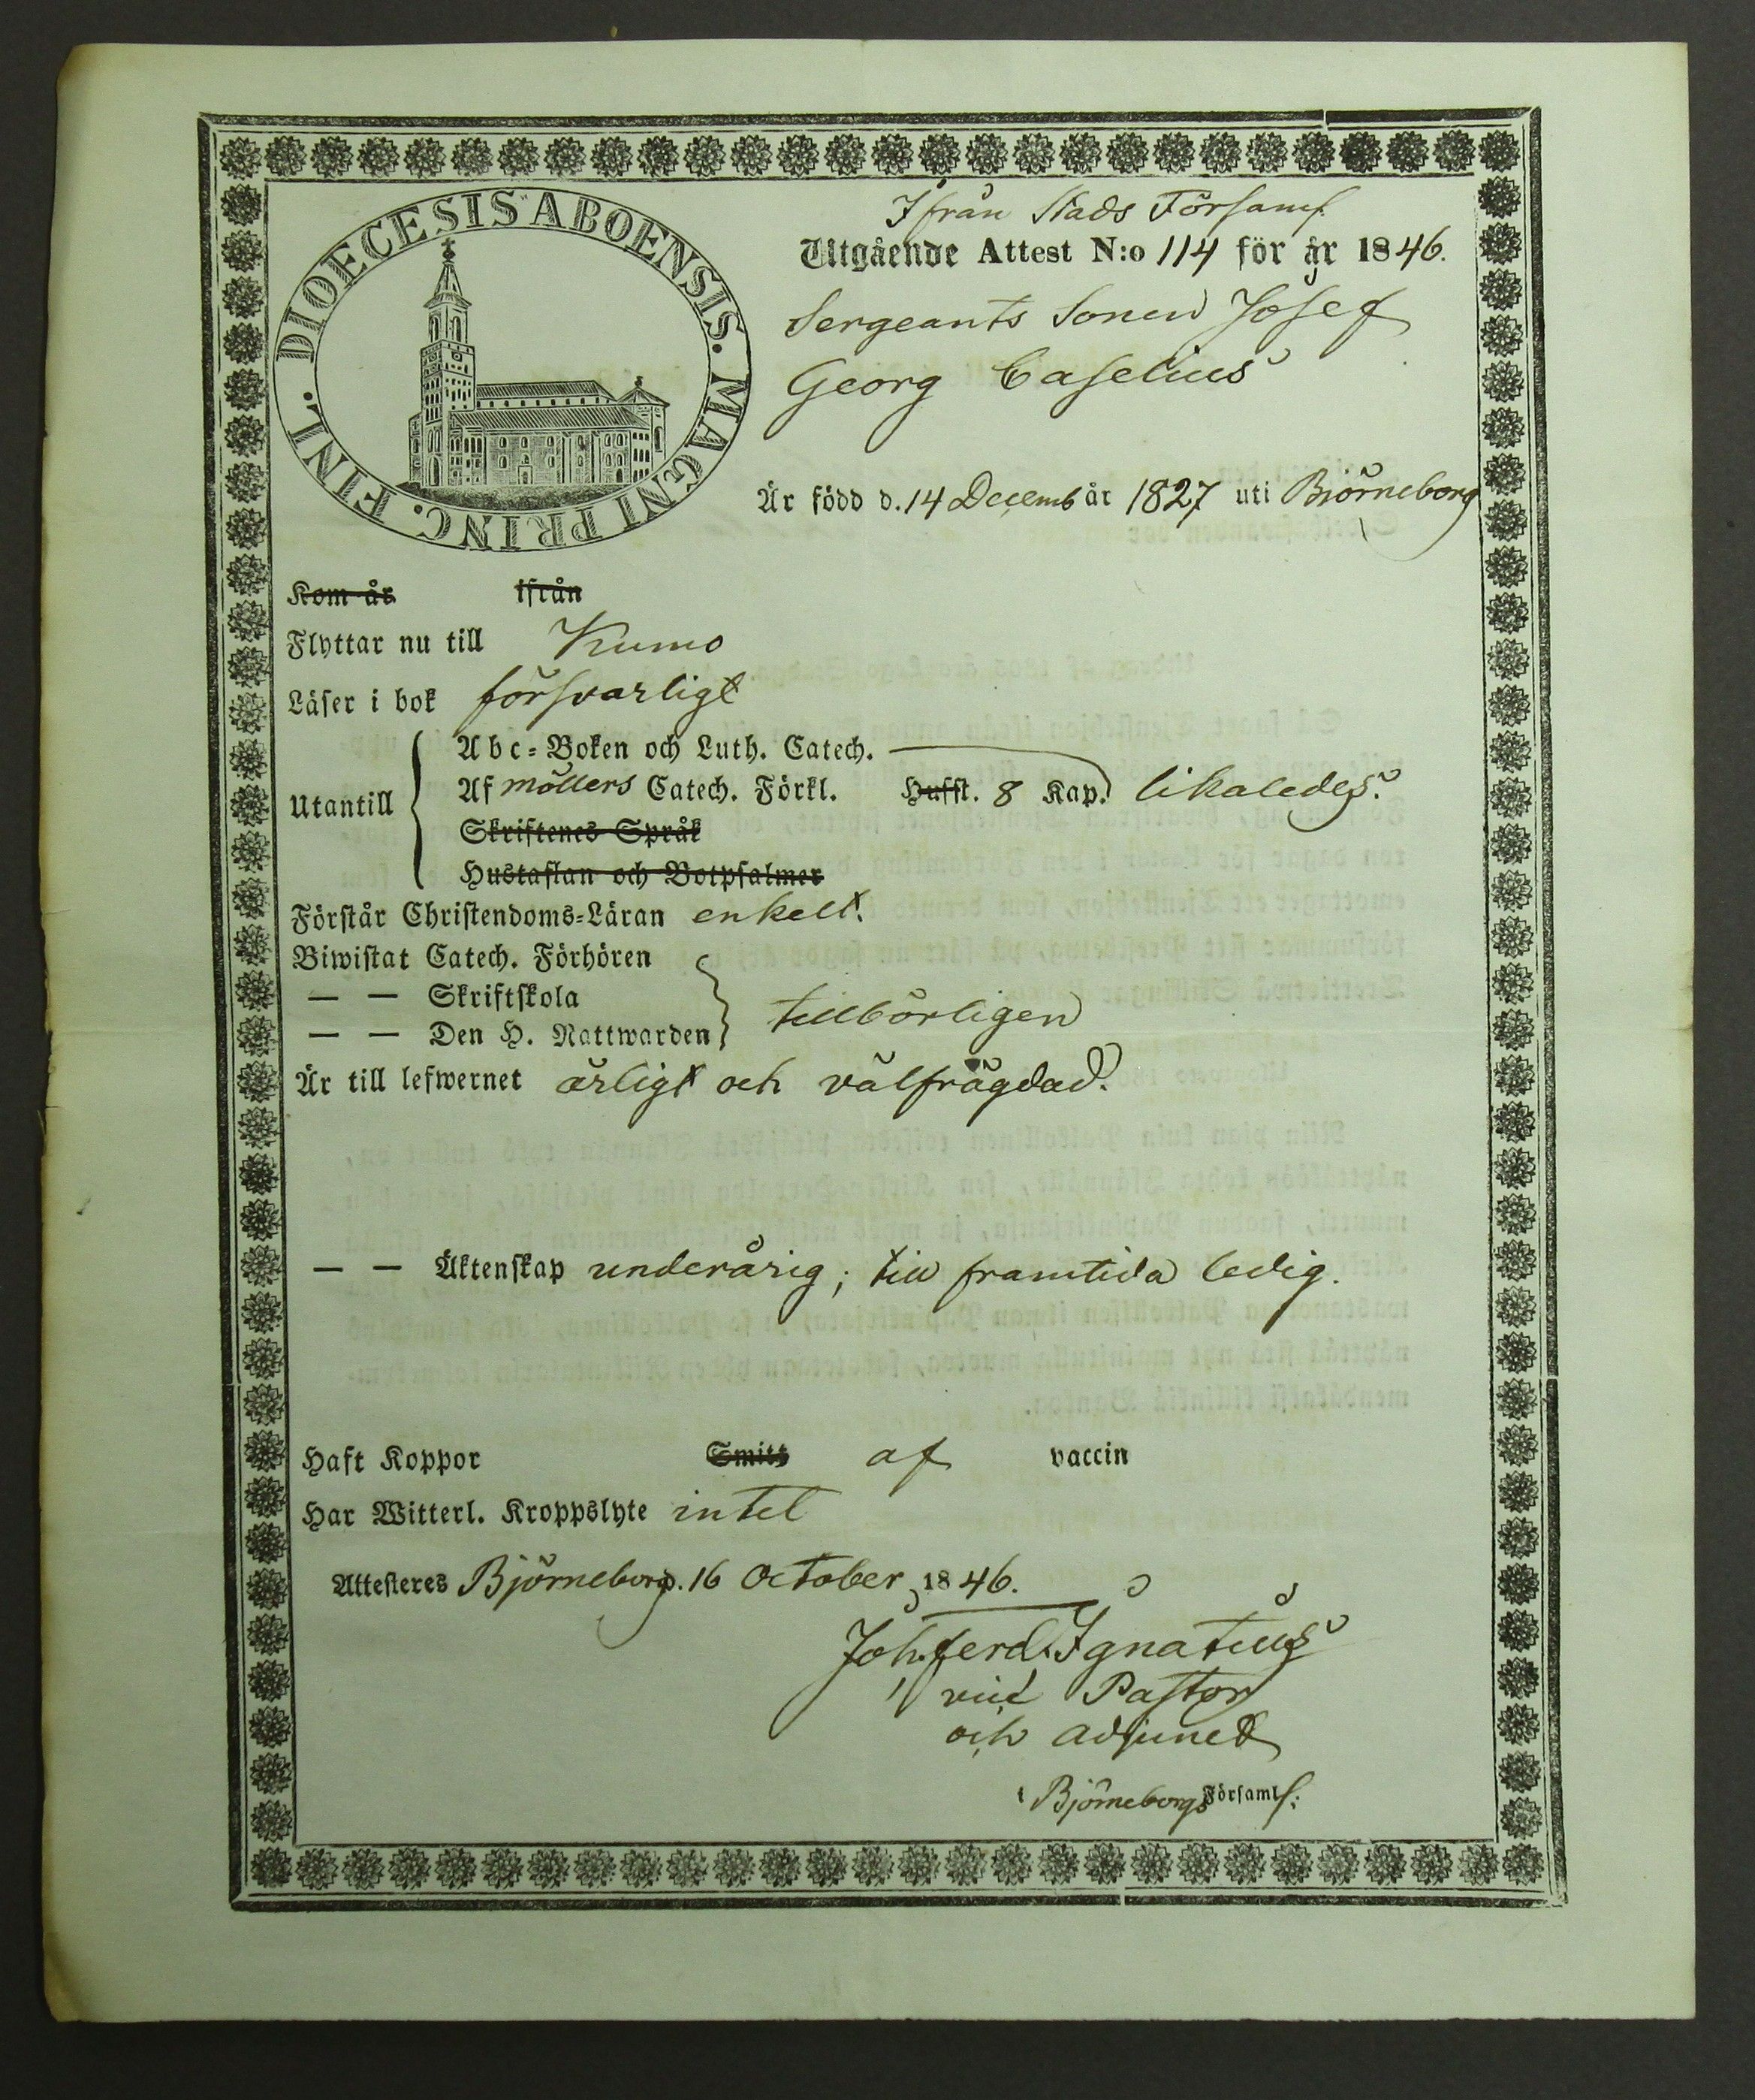 DIOECESIS ABOENSIS. MAGNI PRINC. FINL.
Ifrån Stads Församl.
Utgående Attest N:o 114 för år 1846.
Sergeants Sonen Josef
Georg Caselius
Är född d. 14 Decemb år 1827 uti Björneborg
Kom år ifrån
Flyttar nu till Kumo
Läser i bok försvarligt
Utantill
Abc-Boken och Luth. Catech.
Af möllers Catech. Förkl. Hufst. 8 Kap. likaledes.
Skriftenes Språk
Hustaflan och Botpsalmer
Förstår Christendoms-Läran enkelt.
Biwistat Catech. Förhören
— — Skriftskola
— — Den H. Nattwarden tillbörligen
Är till lefwernet ärligt och välfrägdad.
— — Äktenskap underårig; till framtida ledig.
Haft Koppor Smitt af vaccin
Har Witterl. Kroppslyte intet
Attesteres Björneborg d. 16 October 1846.
Joh. Ferd. Ignatius
vice Pastor
och adjunct
i Björneborgs Församl.